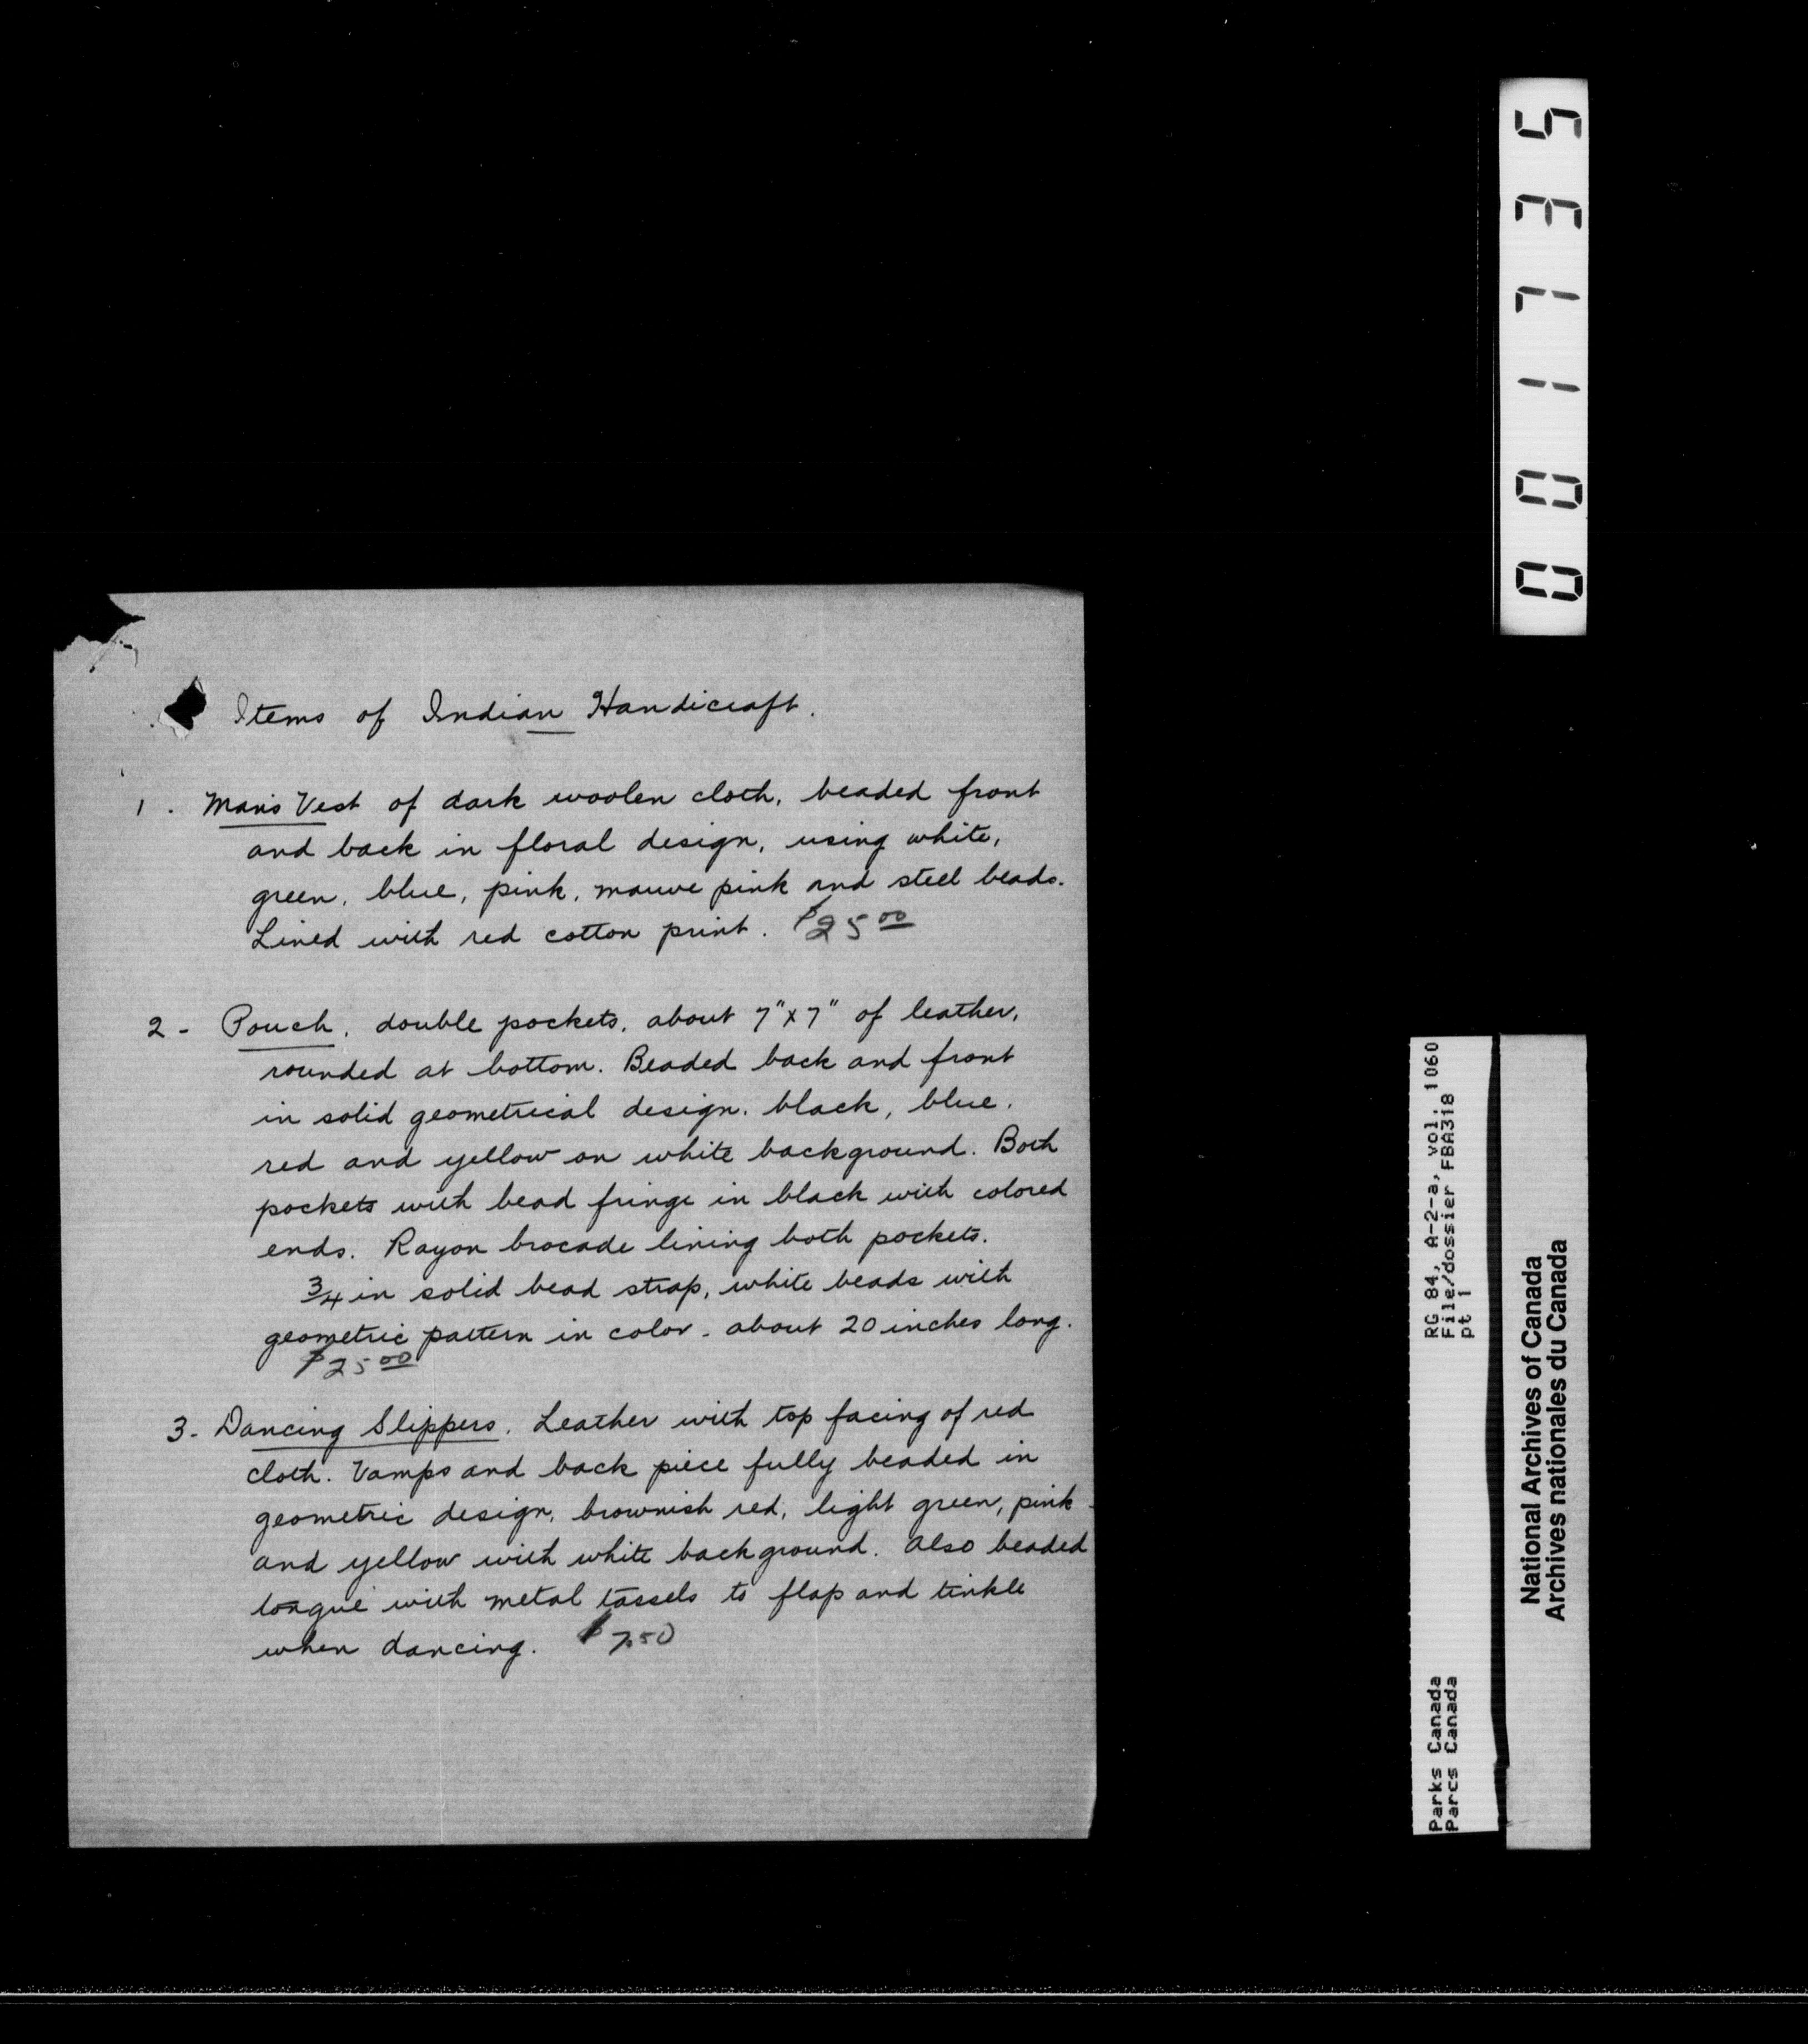 Items of Indian Handicraft.
1. Man's Vest of dark woolen cloth, beaded front
and back in floral design, using white,
green, blue, pink, mauve pink and steel beads.
Lined with red cotton print. $25.00
2 - Pouch, double pockets, about 7"x7" of leather,
rounded at bottom. Beaded back and front
in solid geometrical design. black, blue,
red and yellow on white background. Both
pockets with bead fringe in black with colored
ends. Rayon brocade lining both pockets.
3/4 in solid bead strap, white beads with
geometric pattern in color - about 20 inches long.
$25.00
3 - Dancing Slippers. Leather with top facing of red
cloth. Vamps and back piece fully beaded in
geometric design, brownish red, light green, pink
and yellow with white background. Also beaded
tongue with metal tassels to flap and tinkle
when dancing. $7.50
001735
RG 84, A-2-a, vol. 1060
File/dossier FBA318
pt 1
Parks Canada
Parcs Canada
National Archives of Canada
Archives nationales du Canada